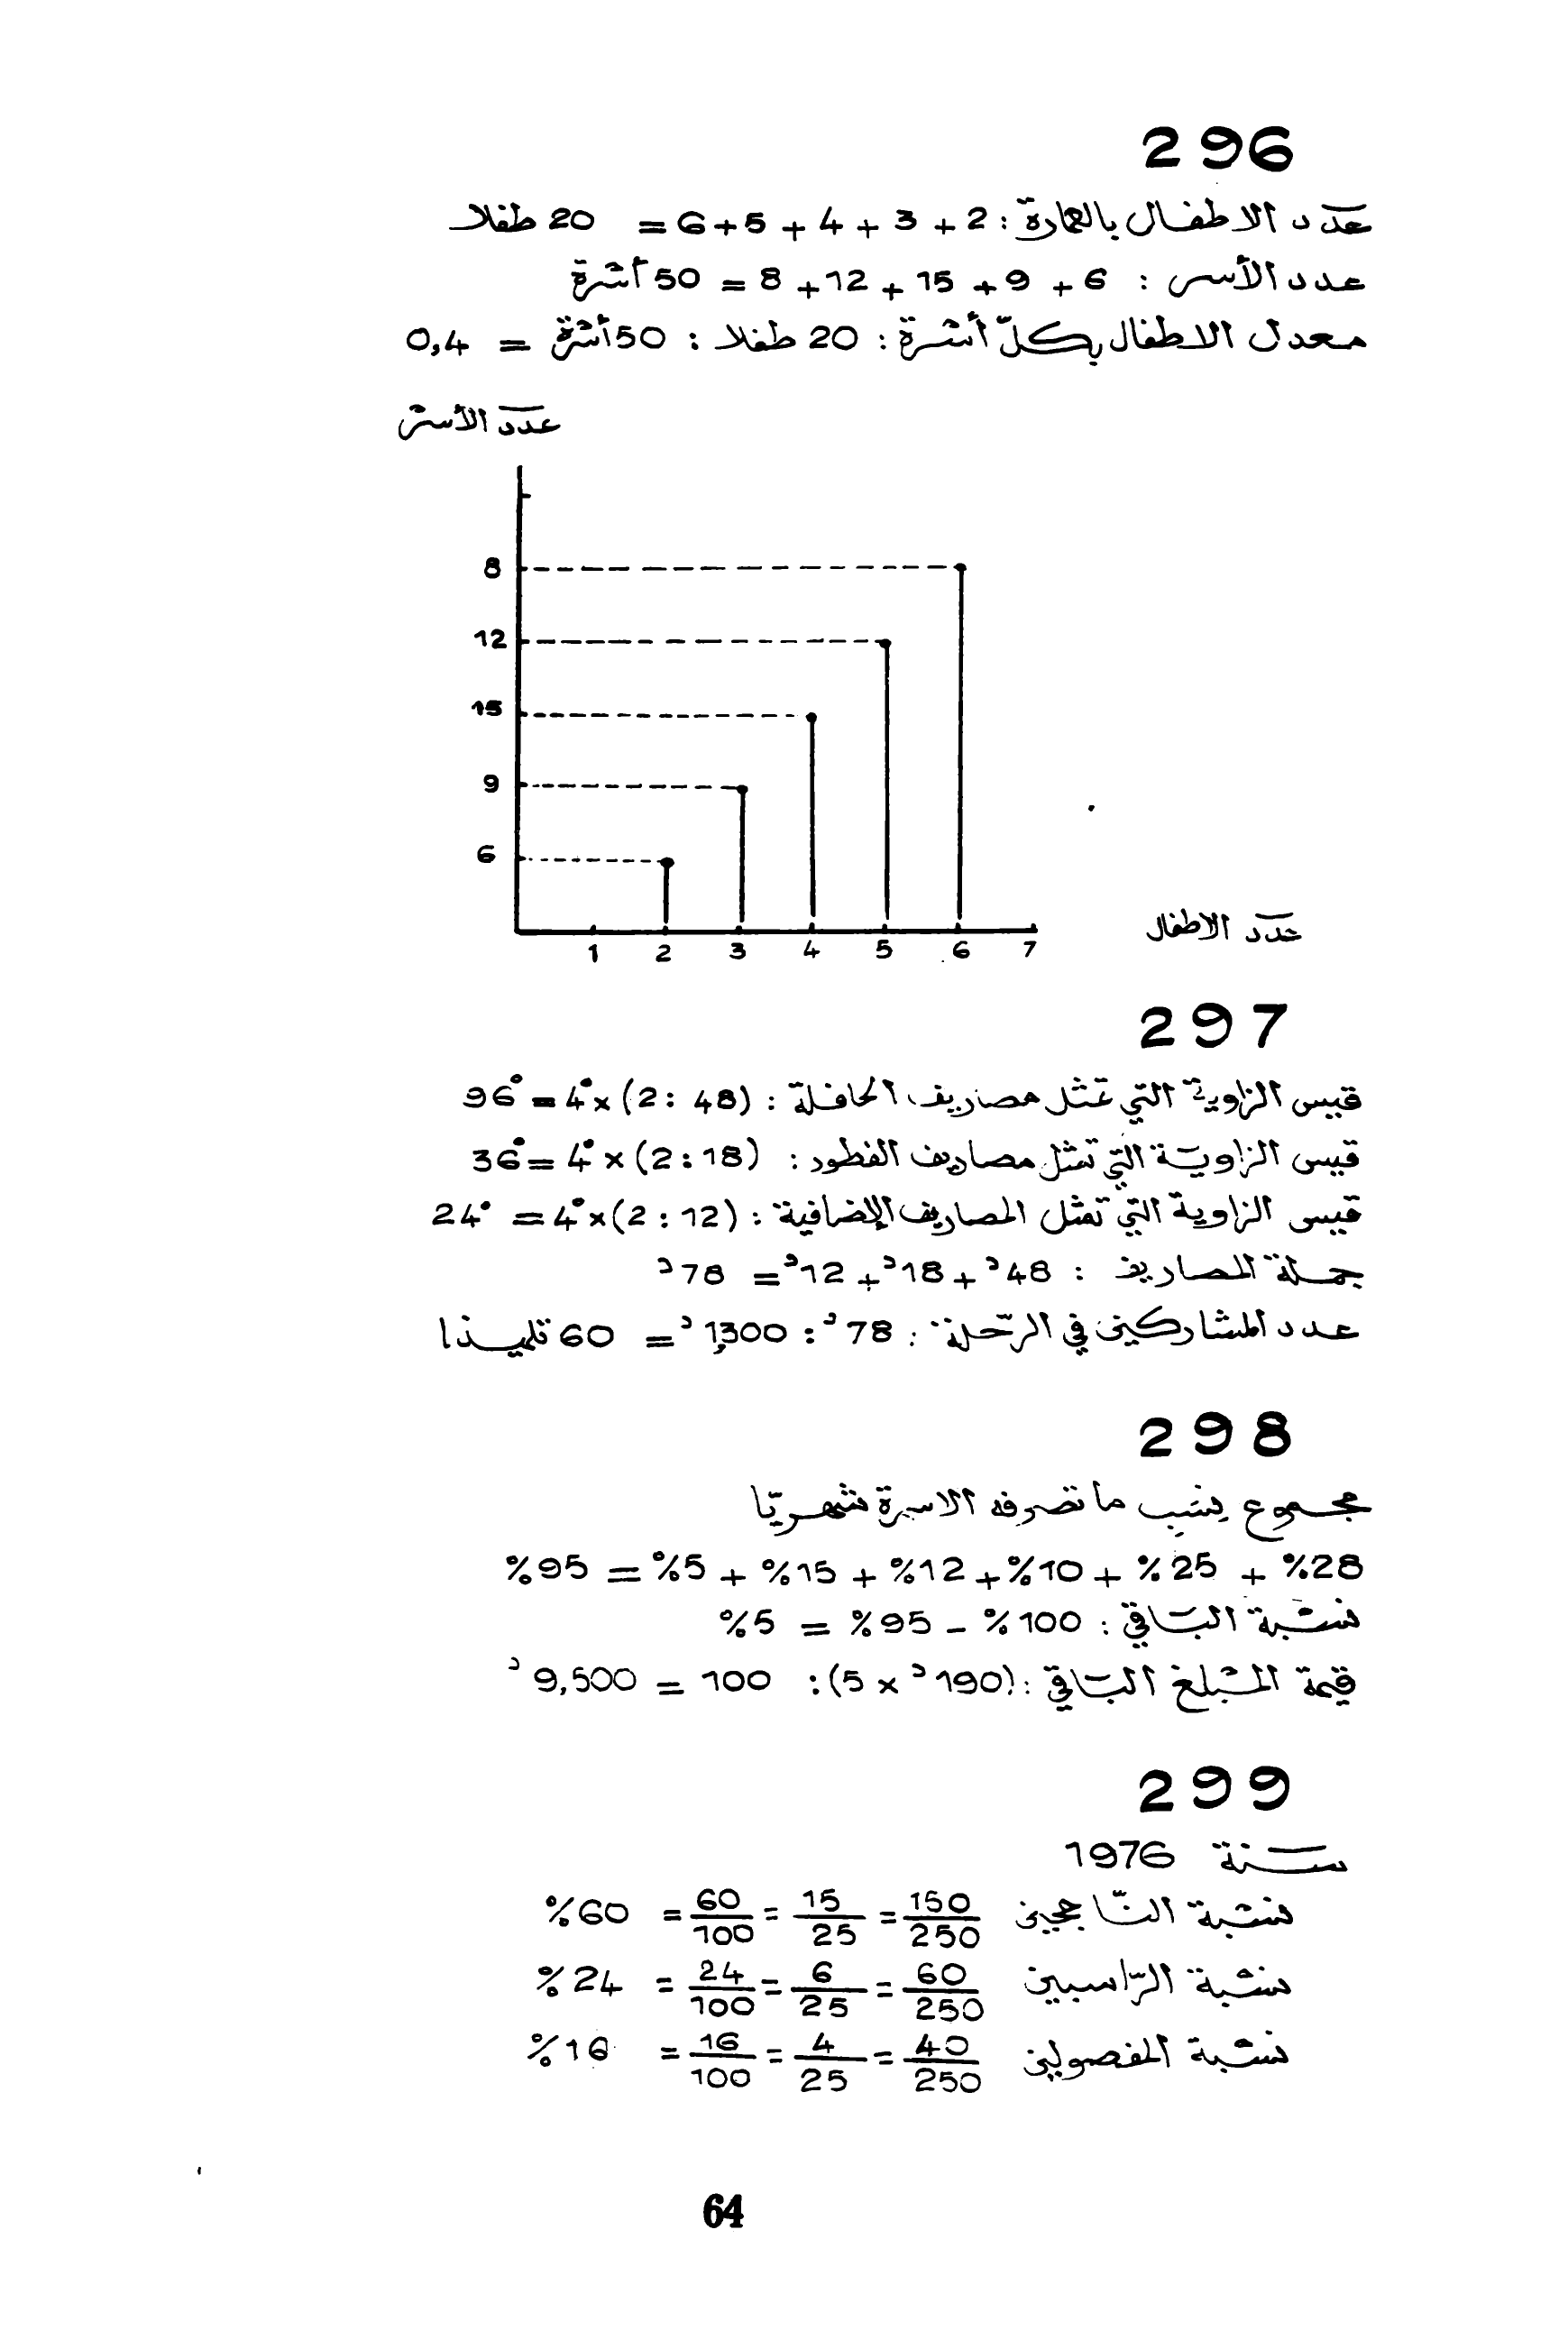 296
عدد الاطفال بالعمارة : 2 + 3 + 4 + 5 + 6 = 20 طفلا
عدد الأسر : 6 + 9 + 15 + 12 + 8 = 50 أسرة
معدل الاطفال بكلّ أسرة : 20 طفلا : 50 أسرة = 0,4
عدد الأسر
8
12
15
9
6
1 2 3 4 5 6 7
عدد الاطفال
297
قيس الزاوية التي تمثل مصاريف الحافلة : (48 : 2) × 4° = 96°
قيس الزاوية التي تمثل مصاريف الفطور : (18 : 2) × 4° = 36°
قيس الزاوية التي تمثل المصاريف الإضافية : (12 : 2) × 4° = 24°
جملة المصاريف : 48د + 18د + 12د = 78د
عدد المشاركين في الرّحلة : 78د : 1,300د = 60 تلميذا
298
مجموع نسب ما تصرفه الاسرة شهريّا
28% + 25% + 10% + 12% + 15% + 5% = 95%
نسبة الباقي : 100% - 95% = 5%
قيمة المبلغ الباقي : (190د × 5) : 100 = 9,500د
299
سنة 1976
نسبة النّاجحين 150/250 = 15/25 = 60/100 = 60%
نسبة الرّاسبين 60/250 = 6/25 = 24/100 = 24%
نسبة المفصولين 40/250 = 4/25 = 16/100 = 16%
64